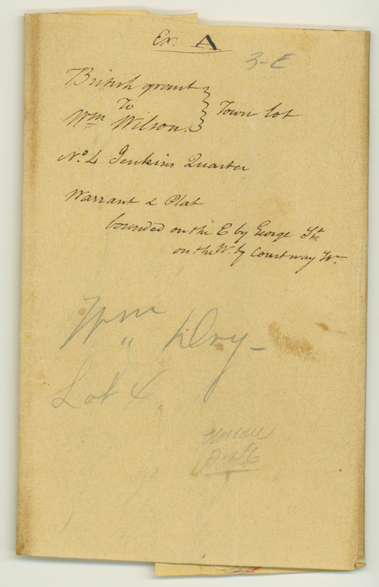 Ex. A
3-E
British grant
To } Town lot
Wm Wilson.
No. 4 Jenkins Quarter
Warrant & Plat
bounded on the E by George St
on the W. by Courtway
Wm Dry
Lot 4